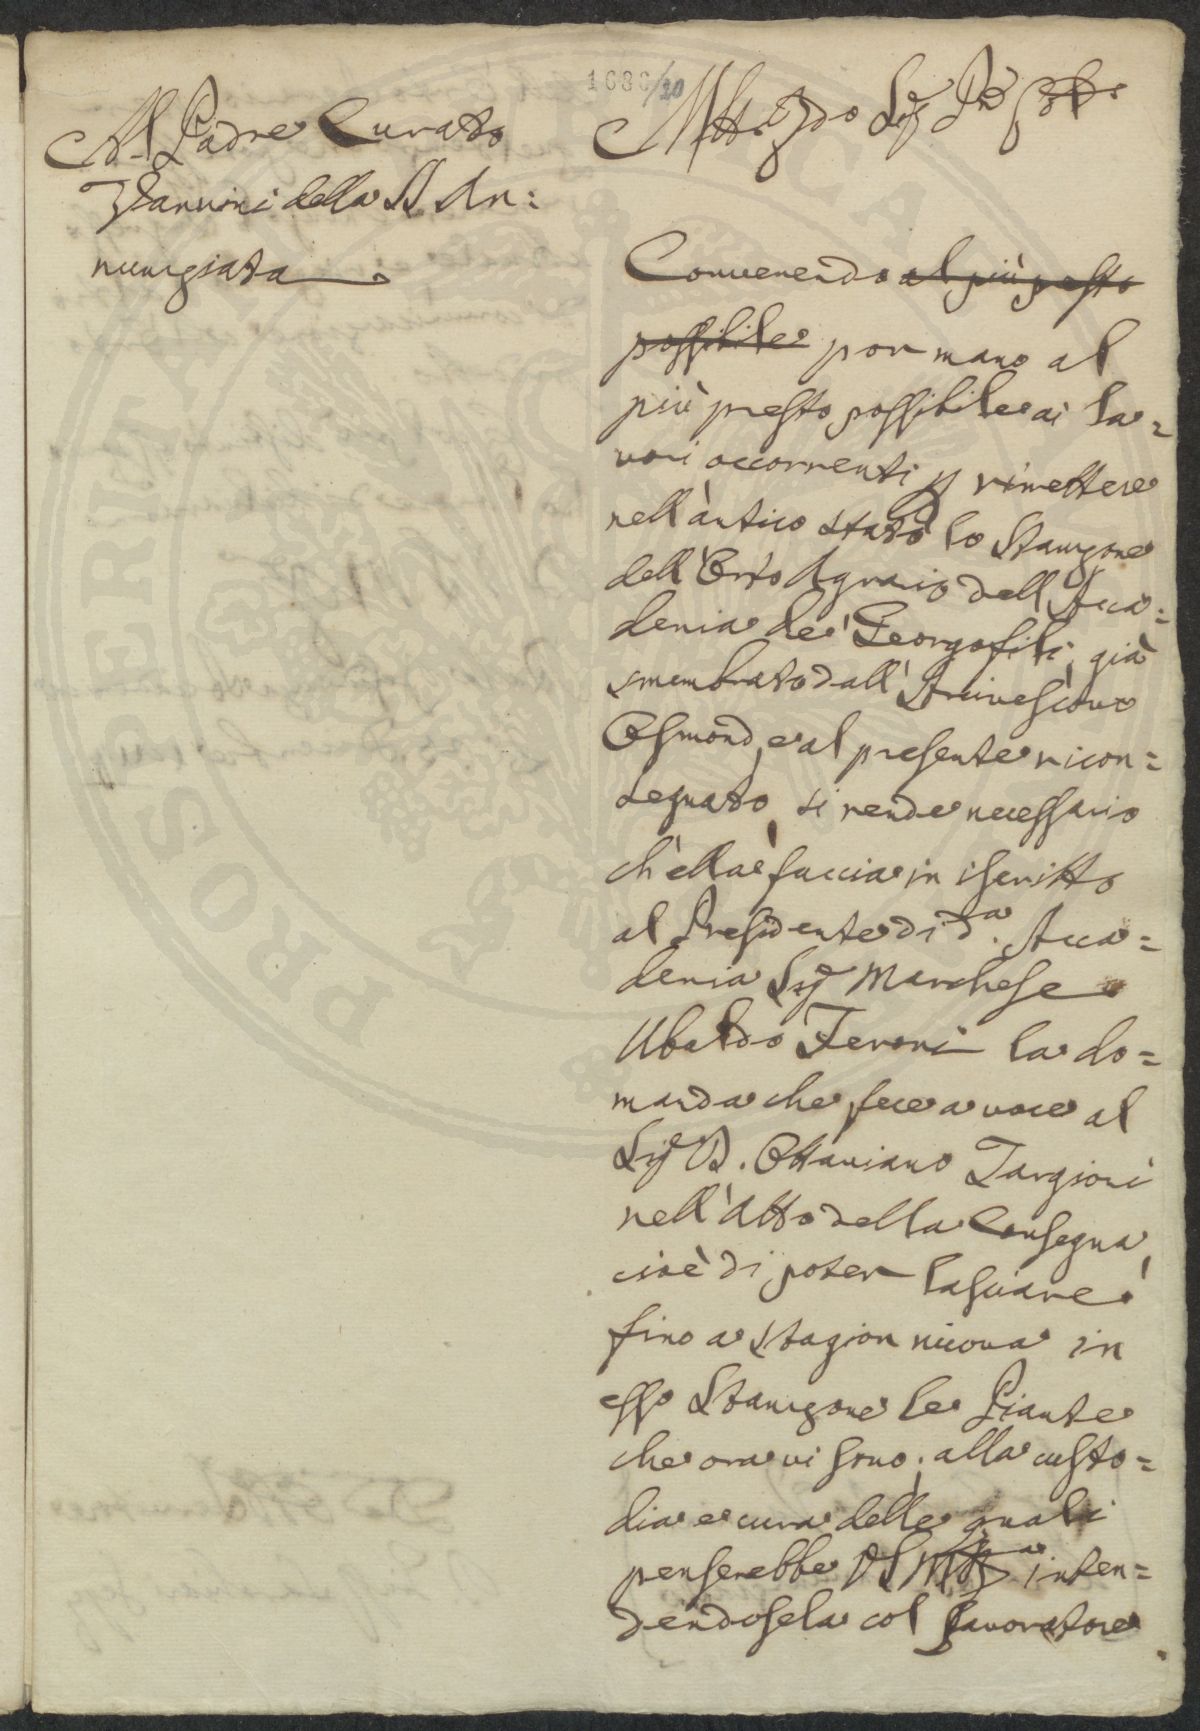 1686/20
Al Padre Curato
Vannini della SS. An:
nunziata
Convenendo al più presto
possibile por mano al
più presto possibile ai la=
vori occorrenti p rimettere
nell'àntico stato lo Stanzone
dell'Orto Agrario dell'Acca=
demia de' Georgofili, già
smembrato dall'Arcivescovo
Osmond, e al presente ricon=
segnato, si rende necessario
ch'ella faccia in iscritto
al Presidente di d.a Acca=
demia Sig Marchese
Ubaldo Feroni la do=
manda che fece a voce al
Sig D. Ottaviano Targioni
nell'Atto della Consegna,
cioè di poter lasciare
fino a stagion nuova in
esso Stanzone le Piante
che ora vi sono; alla custo=
dia e cura delle quali
penserebbe inten=
dendosela col Lavoratore
PROPRIETÀ